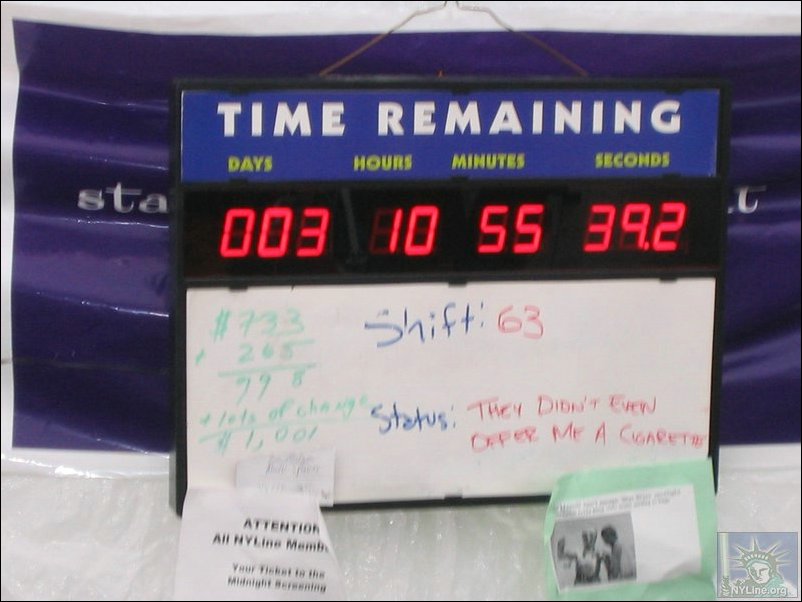 TIME REMAINING
DAYS HOURS MINUTES SECONDS
sta
003 10 55 39.2
$733
+ 265
998
+ lots of change
$1,001
Shift: 63
Status: THEY DIDN'T EVEN
OFFER ME A CIGARETTE
ATTENTION
All NYLine Memb
Your Ticket to the
Midnight Screening
NYLine.org